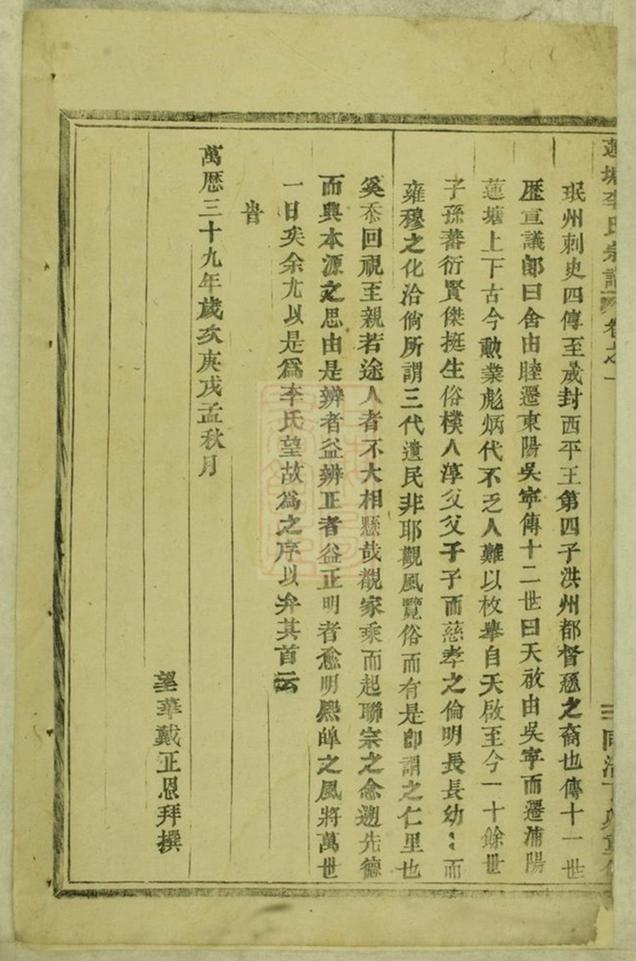 蓮塘李氏宗譜 卷之一
同治丁卯重修
珉州刺史四傳至晟封西平王第四子洪州都督憑之裔也傳十一世
歷宣議郎曰舍由睦遷東陽吳寧傳十二世曰天啟由吳寧而遷浦陽
蓮塘上下古今勳業彪炳代不乏人難以枚舉自天啟至今一十餘世
子孫蕃衍賢傑挺生俗樸人淳父父子子而慈孝之倫明長長幼〻而
雍穆之化洽倘所謂三代遺民非耶觀風覽俗而有是卽謂之仁里也
奚忝回視至親若途人者不大相懸哉觀家乘而起聯宗之念遡先德
而興本源之思由是辨者益辨正者益正明者愈明熙皞之風將萬世
一日矣余尤以是爲李氏望故爲之序以弁其首云
旹
萬歷三十九年歲次庚戌孟秋月
望華戴正恩拜撰